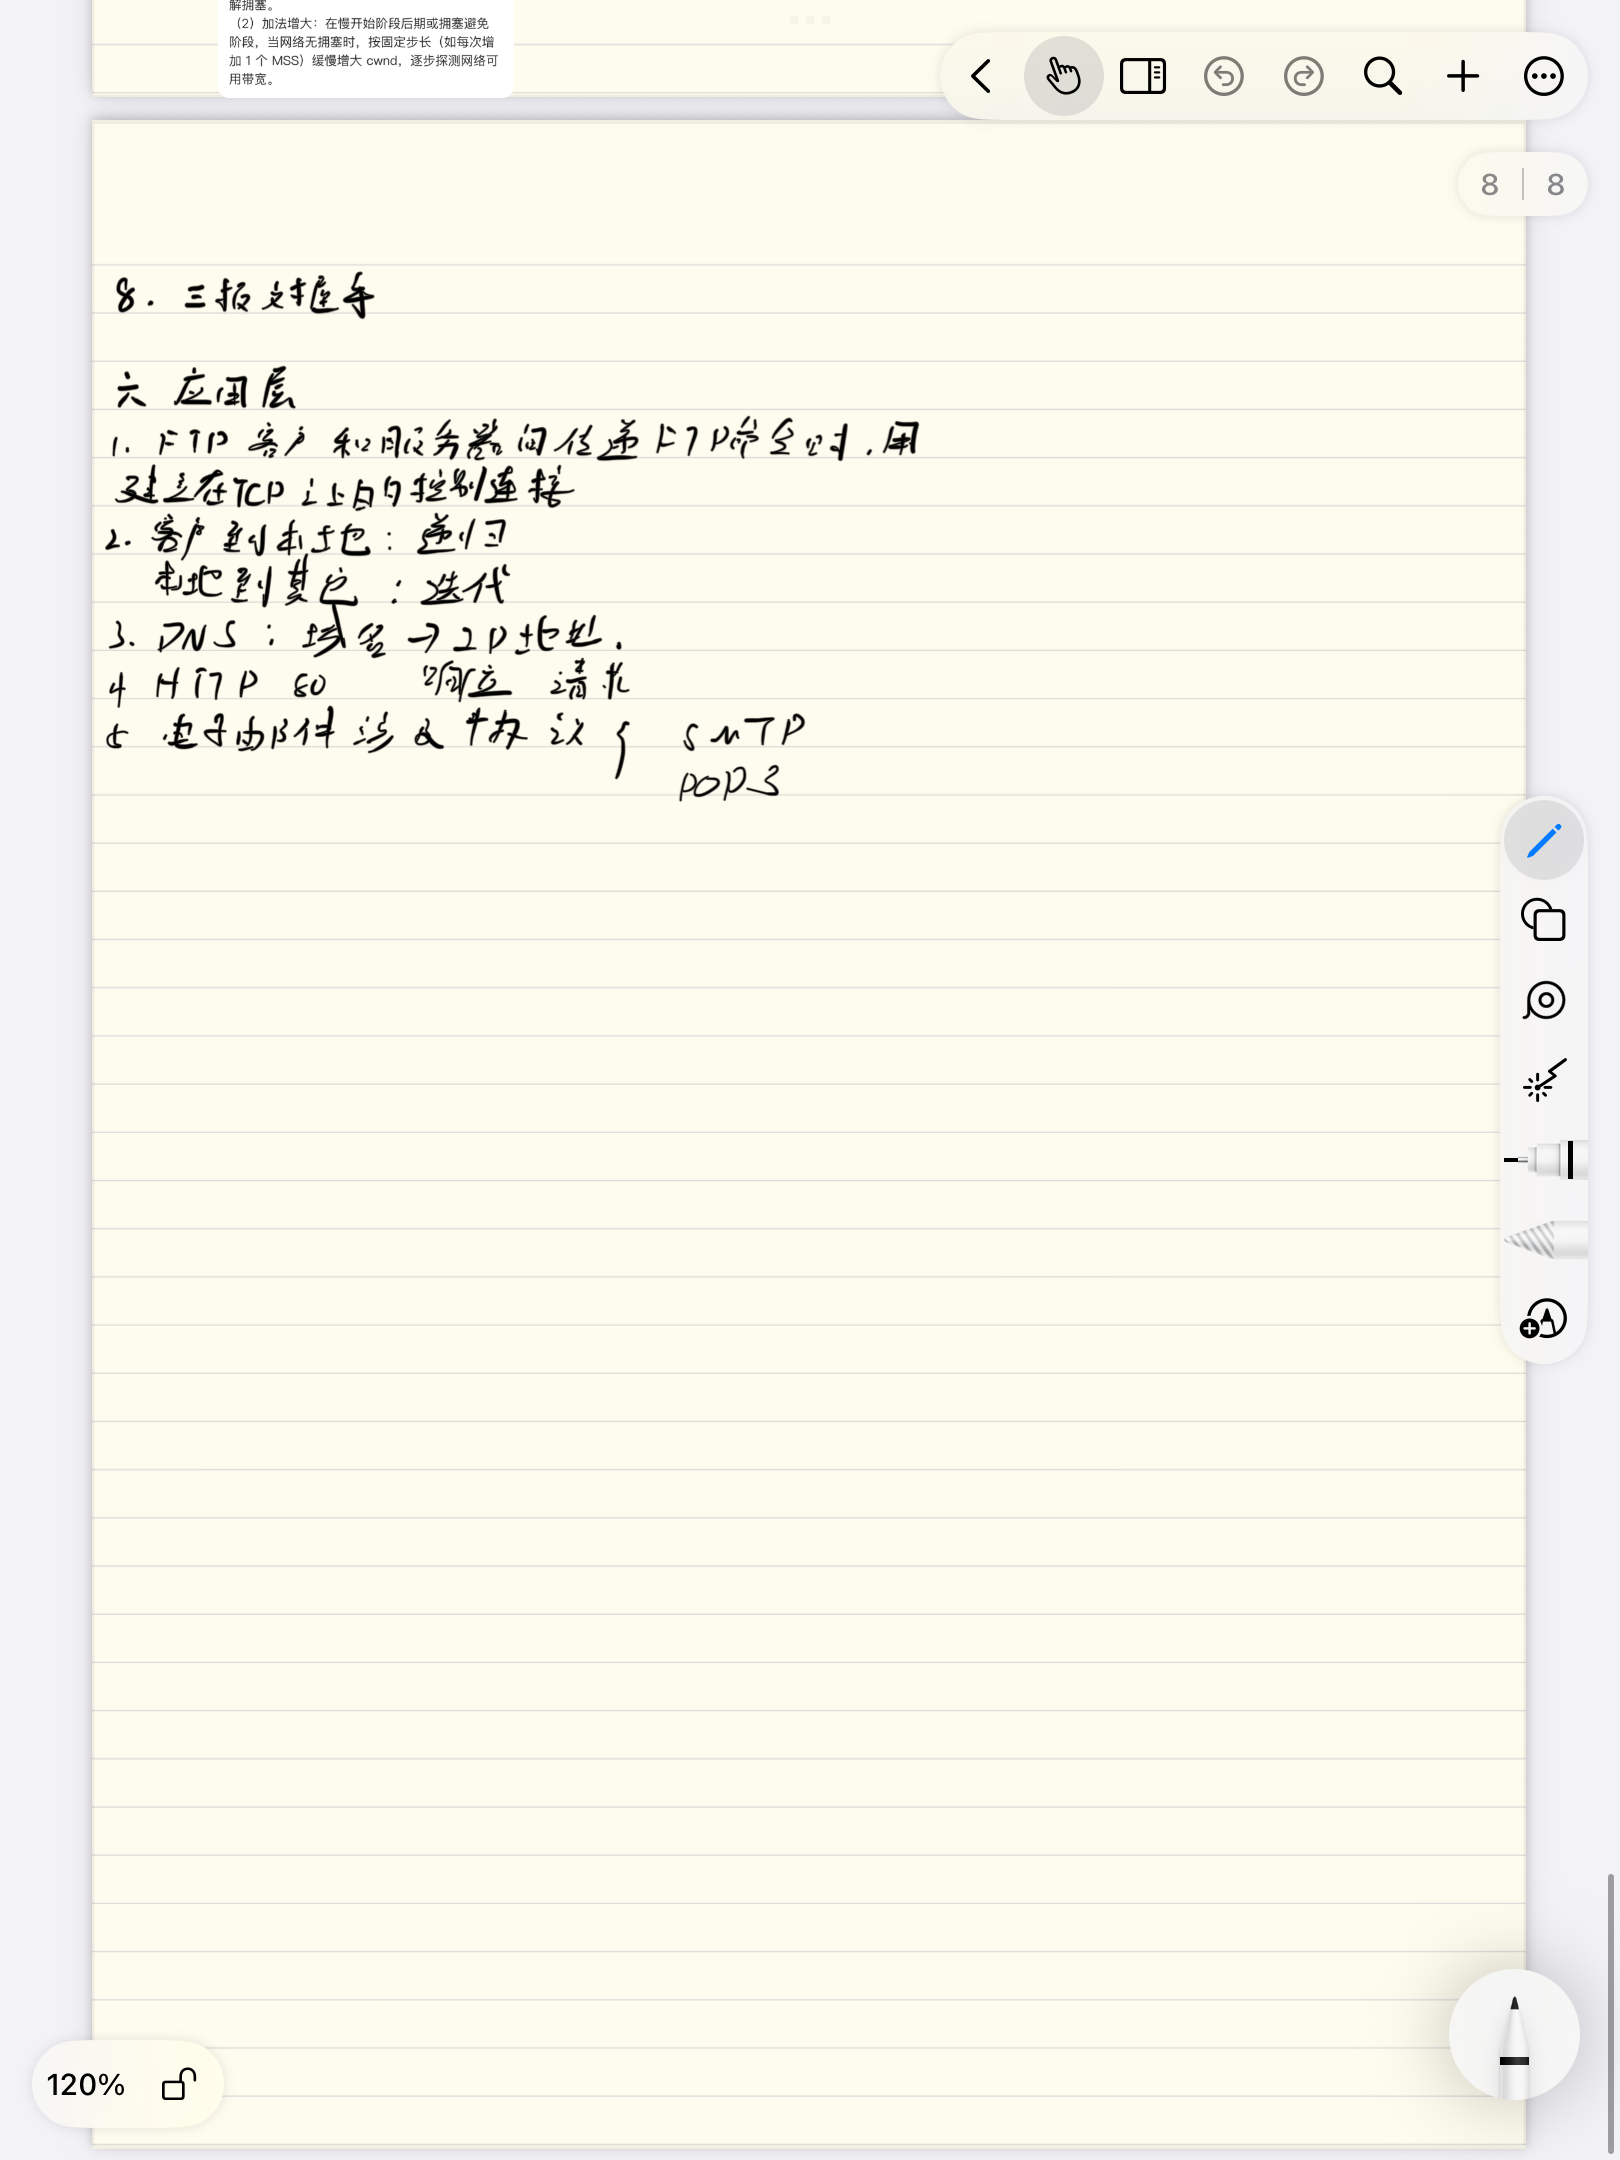 解拥塞。
（2）加法增大：在慢开始阶段后期或拥塞避免
阶段，当网络无拥塞时，按固定步长（如每次增
加 1 个 MSS）缓慢增大 cwnd，逐步探测网络可
用带宽。
8 | 8
8. 三报文握手
六 应用层
1. FTP 客户和服务器间传递FTP命令时，用
建立在TCP之上的控制连接
2. 客户到本地：递归
本地到其它：迭代
3. DNS：域名→IP地址.
4 HTTP 80 响应 请求
5 电子邮件涉及协议{ SMTP
POP3
120%